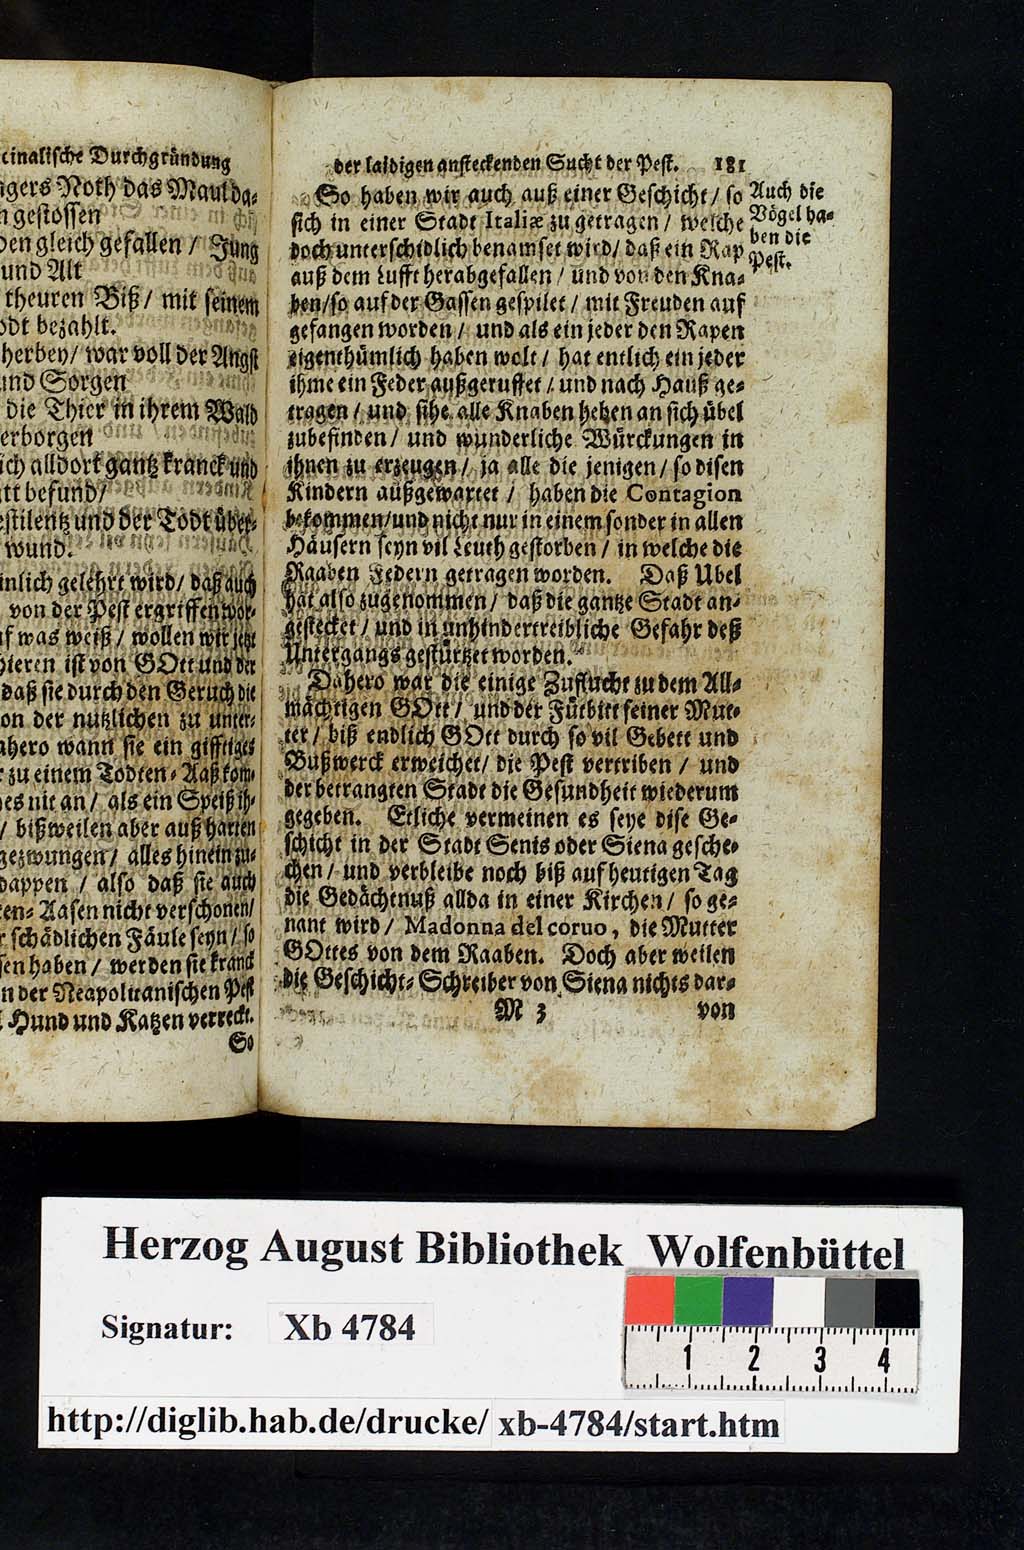 cinalische Durchgründung
gers Noth das Maul da-
n gestossen
den gleich gefallen / Jung
und Alt
theuren Biß / mit seinem
odt bezahlt.
herbey / war voll der Angst
und Sorgen
die Thier in ihrem Wald
erborgen
ich alldort gantz kranck und
att befund /
estilentz und der Todt über-
wund.
inlich gelehrt wird / daß auch
von der Pest ergriffen wor-
uf was weiß / wollen wir jetzt
hieren ist von GOtt und der
daß sie durch den Geruch die
on der nutzlichen zu unter-
ahero wann sie ein gifftiges
r zu einem Todten-Aaß kom-
es nit an / als ein Speiß ih-
/ bißweilen aber auß harten
gezwungen / alles hinein zu-
dappen / also daß sie auch
ten-Aasen nicht verschonen /
r schädlichen Fäule seyn / so
sen haben / werden sie kranck
n der Neapolitanischen Pest
Hund und Katzen verreckt.
So
der laidigen ansteckenden Sucht der Pest. 181
So haben wir auch auß einer Geschicht / so
sich in einer Stadt Italiæ zu getragen / welche
doch unterschidlich benamset wird / daß ein Rap
auß dem Lufft herabgefallen / und von den Kna-
ben / so auf der Gassen gespilet / mit Freuden auf
gefangen worden / und als ein jeder den Rapen
eigenthümlich haben wolt / hat entlich ein jeder
ihme ein Feder außgerupffet / und nach Hauß ge-
tragen / und sihe alle Knaben heben an sich übel
zubefinden / und wunderliche Würckungen in
ihnen zu erzeugen / ja alle die jenigen / so disen
Kindern außgewartet / haben die Contagion
bekommen / und nicht nur in einem sonder in allen
Häusern seyn vil Leuth gestorben / in welche die
Raaben Federn getragen worden. Daß Ubel
hat also zugenommen / daß die gantze Stadt an-
gestecket / und in unhindertreibliche Gefahr deß
Untergangs gestürtzet worden.
Dahero war die einige Zuflucht zu dem All-
mächtigen GOtt / und der Fürbitt seiner Mut-
ter / biß endlich GOtt durch so vil Gebett und
Bußwerck erweichet / die Pest vertriben / und
der betrangten Stadt die Gesundheit wiederum
gegeben. Etliche vermeinen es seye dise Ge-
schicht in der Stadt Senis oder Siena gesche-
chen / und verbleibe noch biß auf heutigen Tag
die Gedächtnuß allda in einer Kirchen / so ge-
nant wird / Madonna del coruo, die Mutter
GOttes von dem Raaben. Doch aber weilen
die Geschicht-Schreiber von Siena nichts dar-
M 3 von
Auch die
Vögel ha-
ben die
Pest.
Herzog August Bibliothek Wolfenbüttel
Signatur: Xb 4784
1 2 3 4
http://diglib.hab.de/drucke/ xb-4784/start.htm